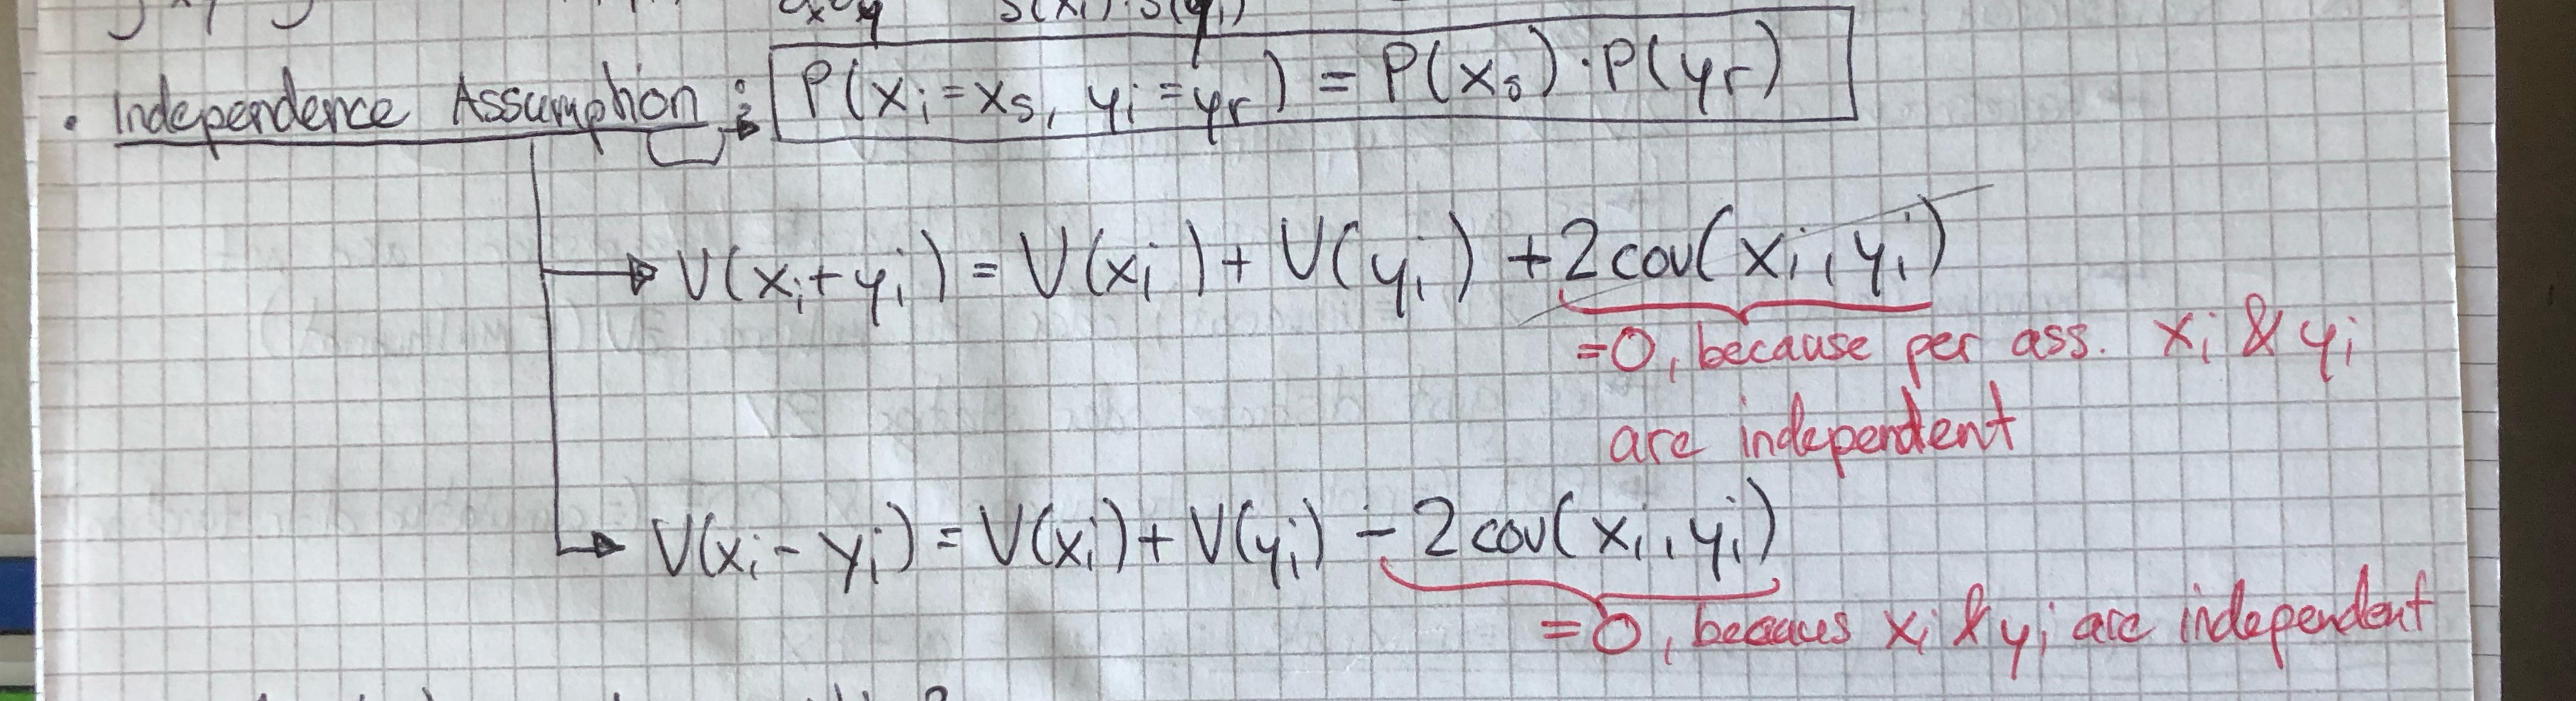 S(xi)·S(yi)
· Independence Assumption: P(xi=xs, yi=yr) = P(xs)·P(yr)
V(xi+yi) = V(xi) + V(yi) + 2cov(xi, yi)
=0, because per ass. xi & yi
are independent
V(xi - yi) = V(xi) + V(yi) - 2cov(xi, yi)
=0, becaus xi & yi are independent